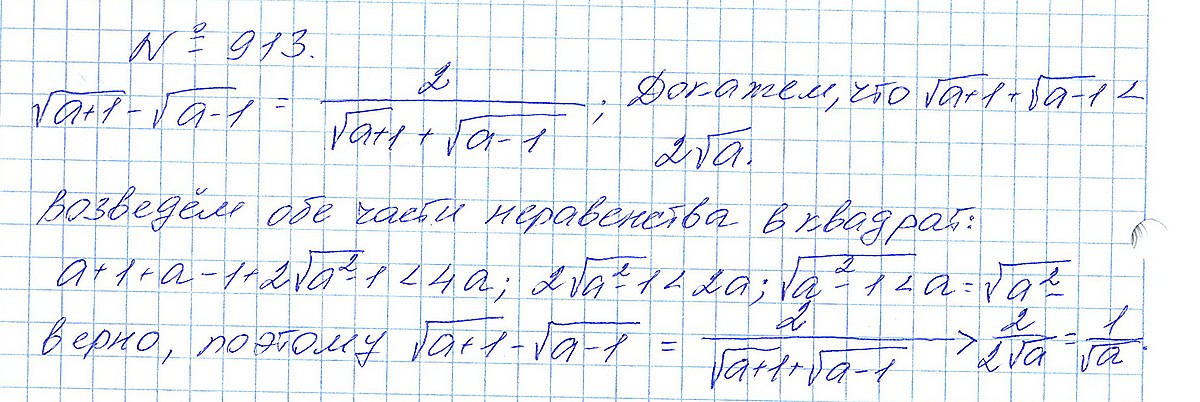 № 913.
√(a+1) - √(a-1) = 2/(√(a+1) + √(a-1)) ; Докажем, что √(a+1) + √(a-1) <
2√a.
Возведём обе части неравенства в квадрат:
a+1+a-1+2√(a²-1) < 4a; 2√(a²-1) < 2a; √(a²-1) < a = √(a²) -
верно, поэтому √(a+1) - √(a-1) = 2/(√(a+1) + √(a-1)) > 2/(2√a) = 1/√a.